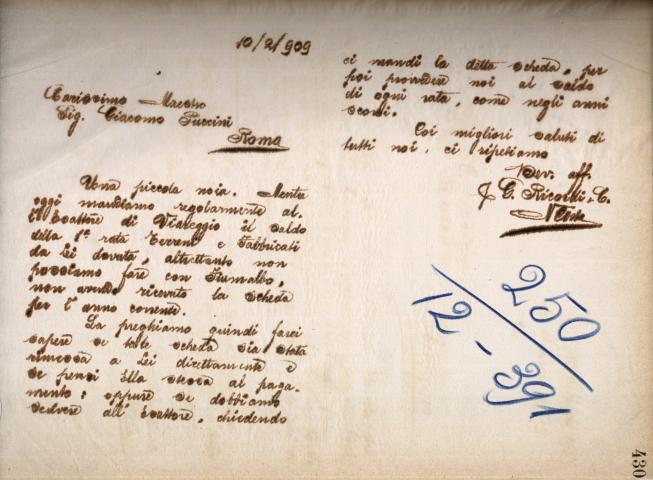 10/2/909
Carissimo Maestro
Sig. Giacomo Puccini
Roma
Una piccola noia. Mentre
oggi mandiamo regolarmente al-
l'Esattore di Viareggio il saldo
della 1ª rata Terreni e Fabbricati
da Lei dovuta, altrettanto non
possiamo fare con Fiumalbo,
non avendo ricevuto la scheda
per l'anno corrente.
La preghiamo quindi farci
sapere se tale scheda sia stata
rimessa a Lei direttamente e
se pensi Ella stessa al paga-
mento; oppure se dobbiamo
scrivere all'Esattore, chiedendo
ci mandi la detta scheda, per
poi provvedere noi al saldo
di ogni rata, come negli anni
scorsi.
Coi migliori saluti di
tutti noi, ci ripetiamo
Dev. aff.
G. Ricordi & C.
250
12-391
430